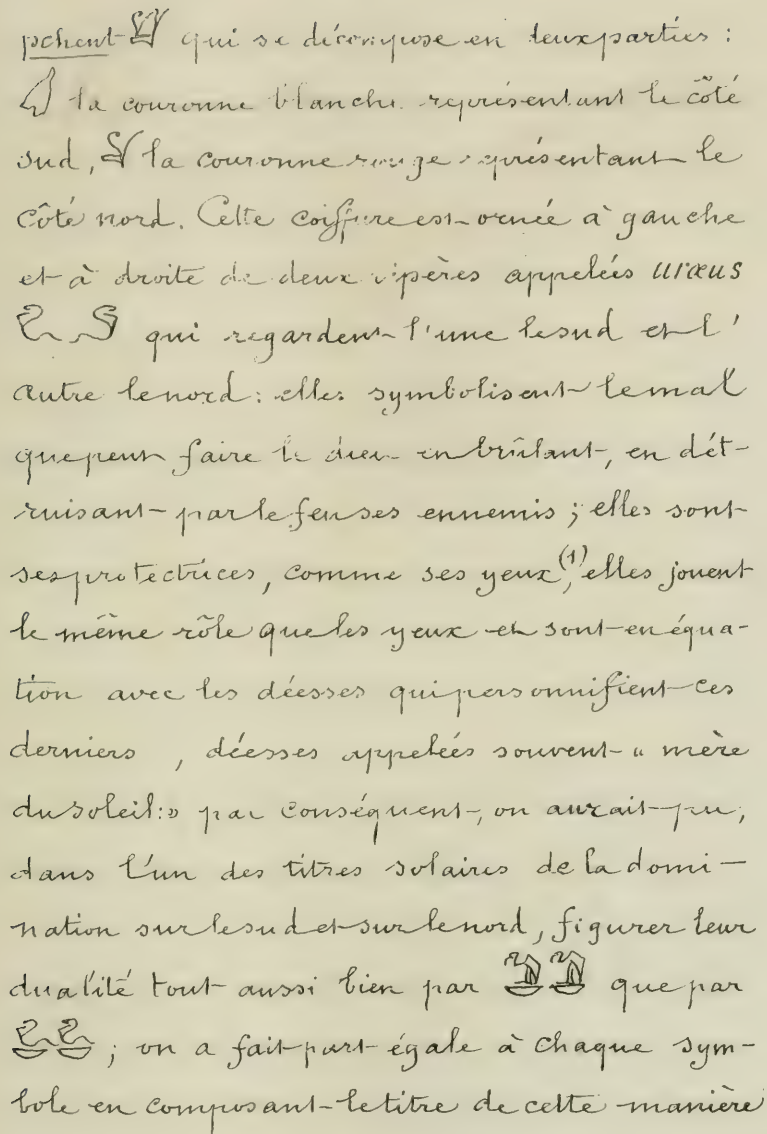 pschent 𓋖 qui se décompose en deux parties :
𓋑 la couronne blanche représentant le côté
sud, 𓋔 la couronne rouge représentant le
côté nord. Cette coiffure est ornée à gauche
et à droite de deux vipères appelées uraeus
qui regardent l'une le sud et l'
autre le nord : elles symbolisent le mal
que peut faire le dieu en brûlant, en dét-
ruisant par le feu ses ennemis ; elles sont
ses protectrices, comme ses yeux (1), elles jouent
le même rôle que les yeux et sont en équa-
tion avec les déesses qui personnifient ces
derniers , déesses appelées souvent « mère
du soleil : » par conséquent, on aurait pu,
dans l'un des titres solaires de la domi-
nation sur le sud et sur le nord, figurer leur
dualité tout aussi bien par que par
; on a fait part égale à chaque sym-
bole en composant le titre de cette manière